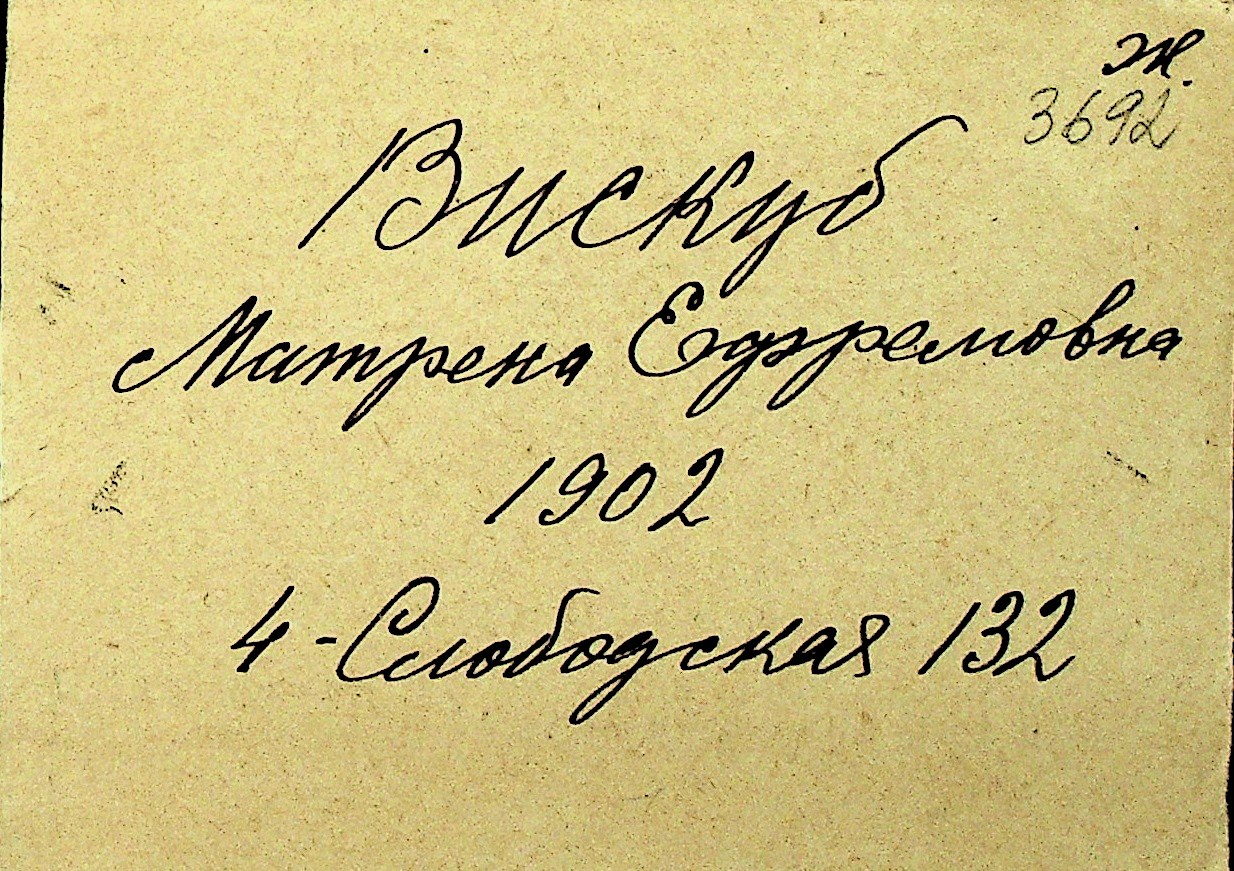 ж.
3692
Вискуб
Матрена Ефремовна
1902
4-Слободская 132